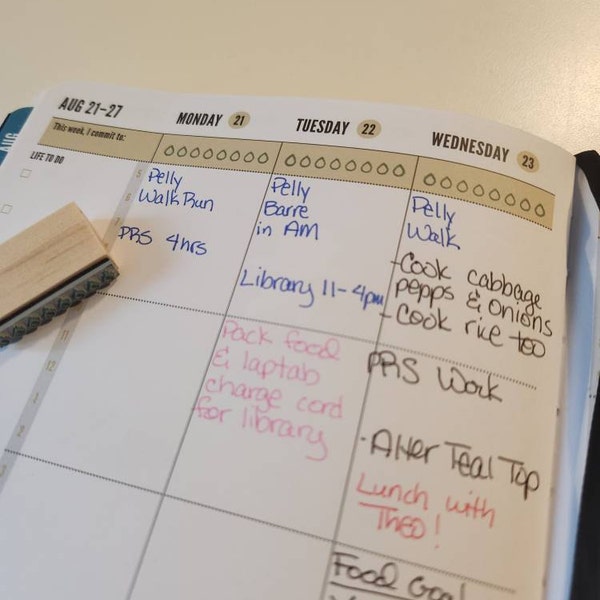 AUG
AUG 21-27
This week, I commit to:
LIFE TO DO
MONDAY 21
Pelly
Walk Run
PRS 4hrs
11
12
1
2
3
TUESDAY 22
Pelly
Barre
in AM
Library 11-4pm
Pack food
& laptab
charge cord
for library
WEDNESDAY 23
Pelly
Walk
-Cook cabbage
pepps & onions
-Cook rice too
PRS Work
·Alter Teal Top
Lunch with
Theo!
Food Goal